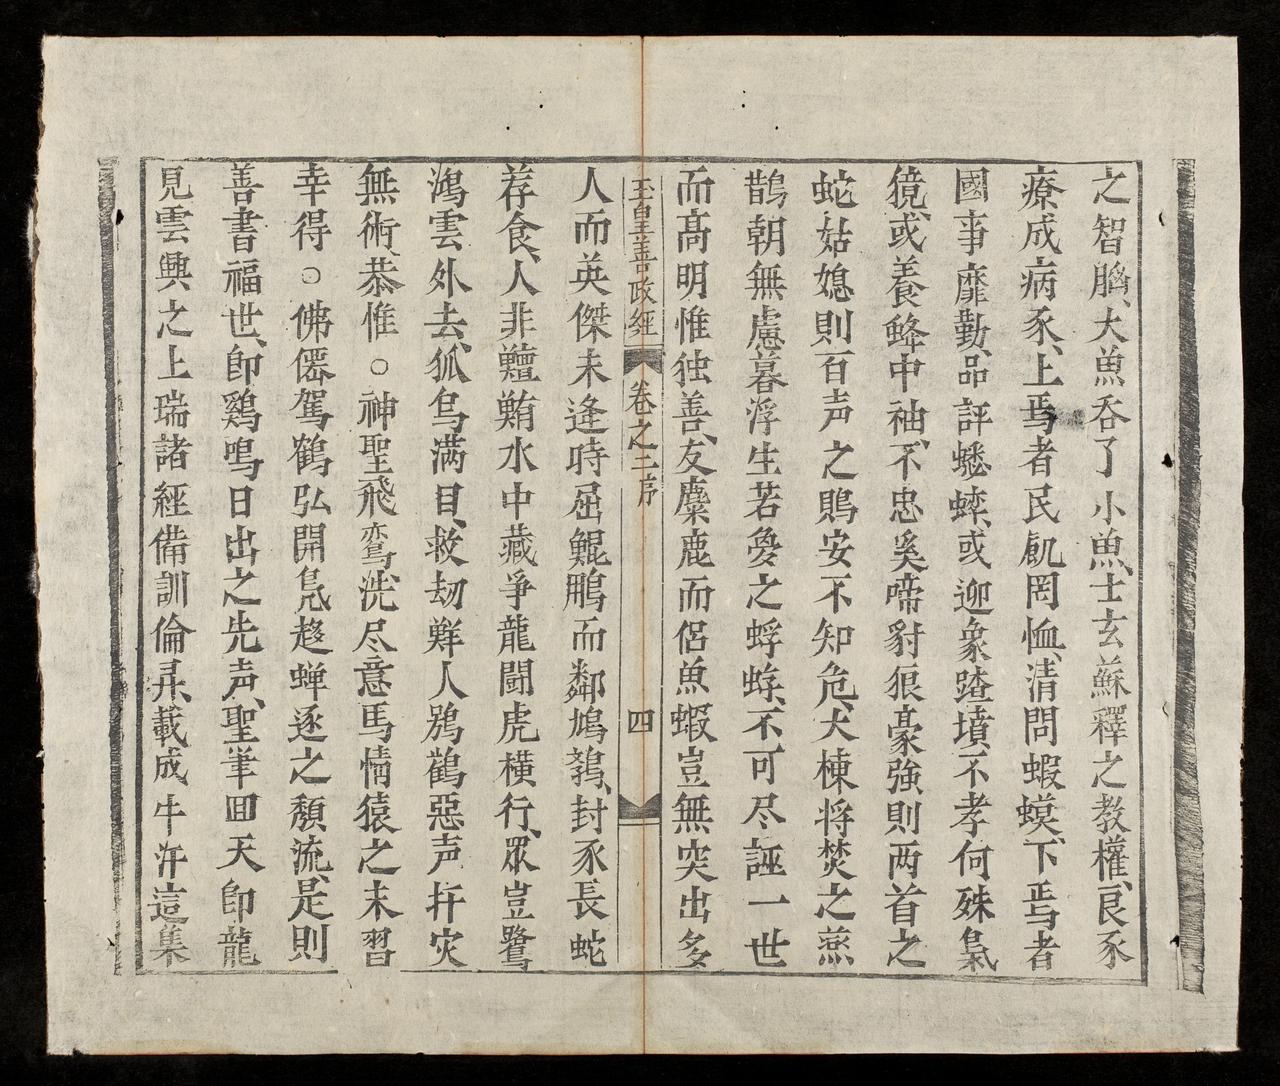 之智腦、大魚吞了小魚、士玄蘇釋之教權、良豕
療成病豕、上焉者民飢罔恤、清問蝦蟆、下焉者
國事靡勤、品評蟋蟀、或迎象踏墳、不孝何殊梟
獍、或養蜂中袖、不忠奚啼豺狼、豪強則两首之
蛇姑媳則百声之鵙安不知危、犬棟将焚之燕
鵲朝無慮暮浮生若夐之蜉蝣、不可尽誣一世
而髙明惟独善、友麋鹿而侶魚蝦豈無突出多
玉皇善政經 卷之三序 四
人而英傑未逢時屈鯤鵬而鄰鳩鷃、封豕長蛇
荐食、人非鱣鮪水中藏爭龍闘虎橫行、眾豈鷺
鴻雲外去、狐烏满目、救刼鮮人鴉鶴惡声并灾
無術、恭惟○神聖飛鸞、洗尽意馬情猿之末習
幸得○佛僊駕鶴弘開鳧趍蝉逐之頹流、是則
善書福世、即鷄鳴日出之先声、聖筆回天即龍
見雲興之上瑞諸經備訓倫昇、載成牛汗這集